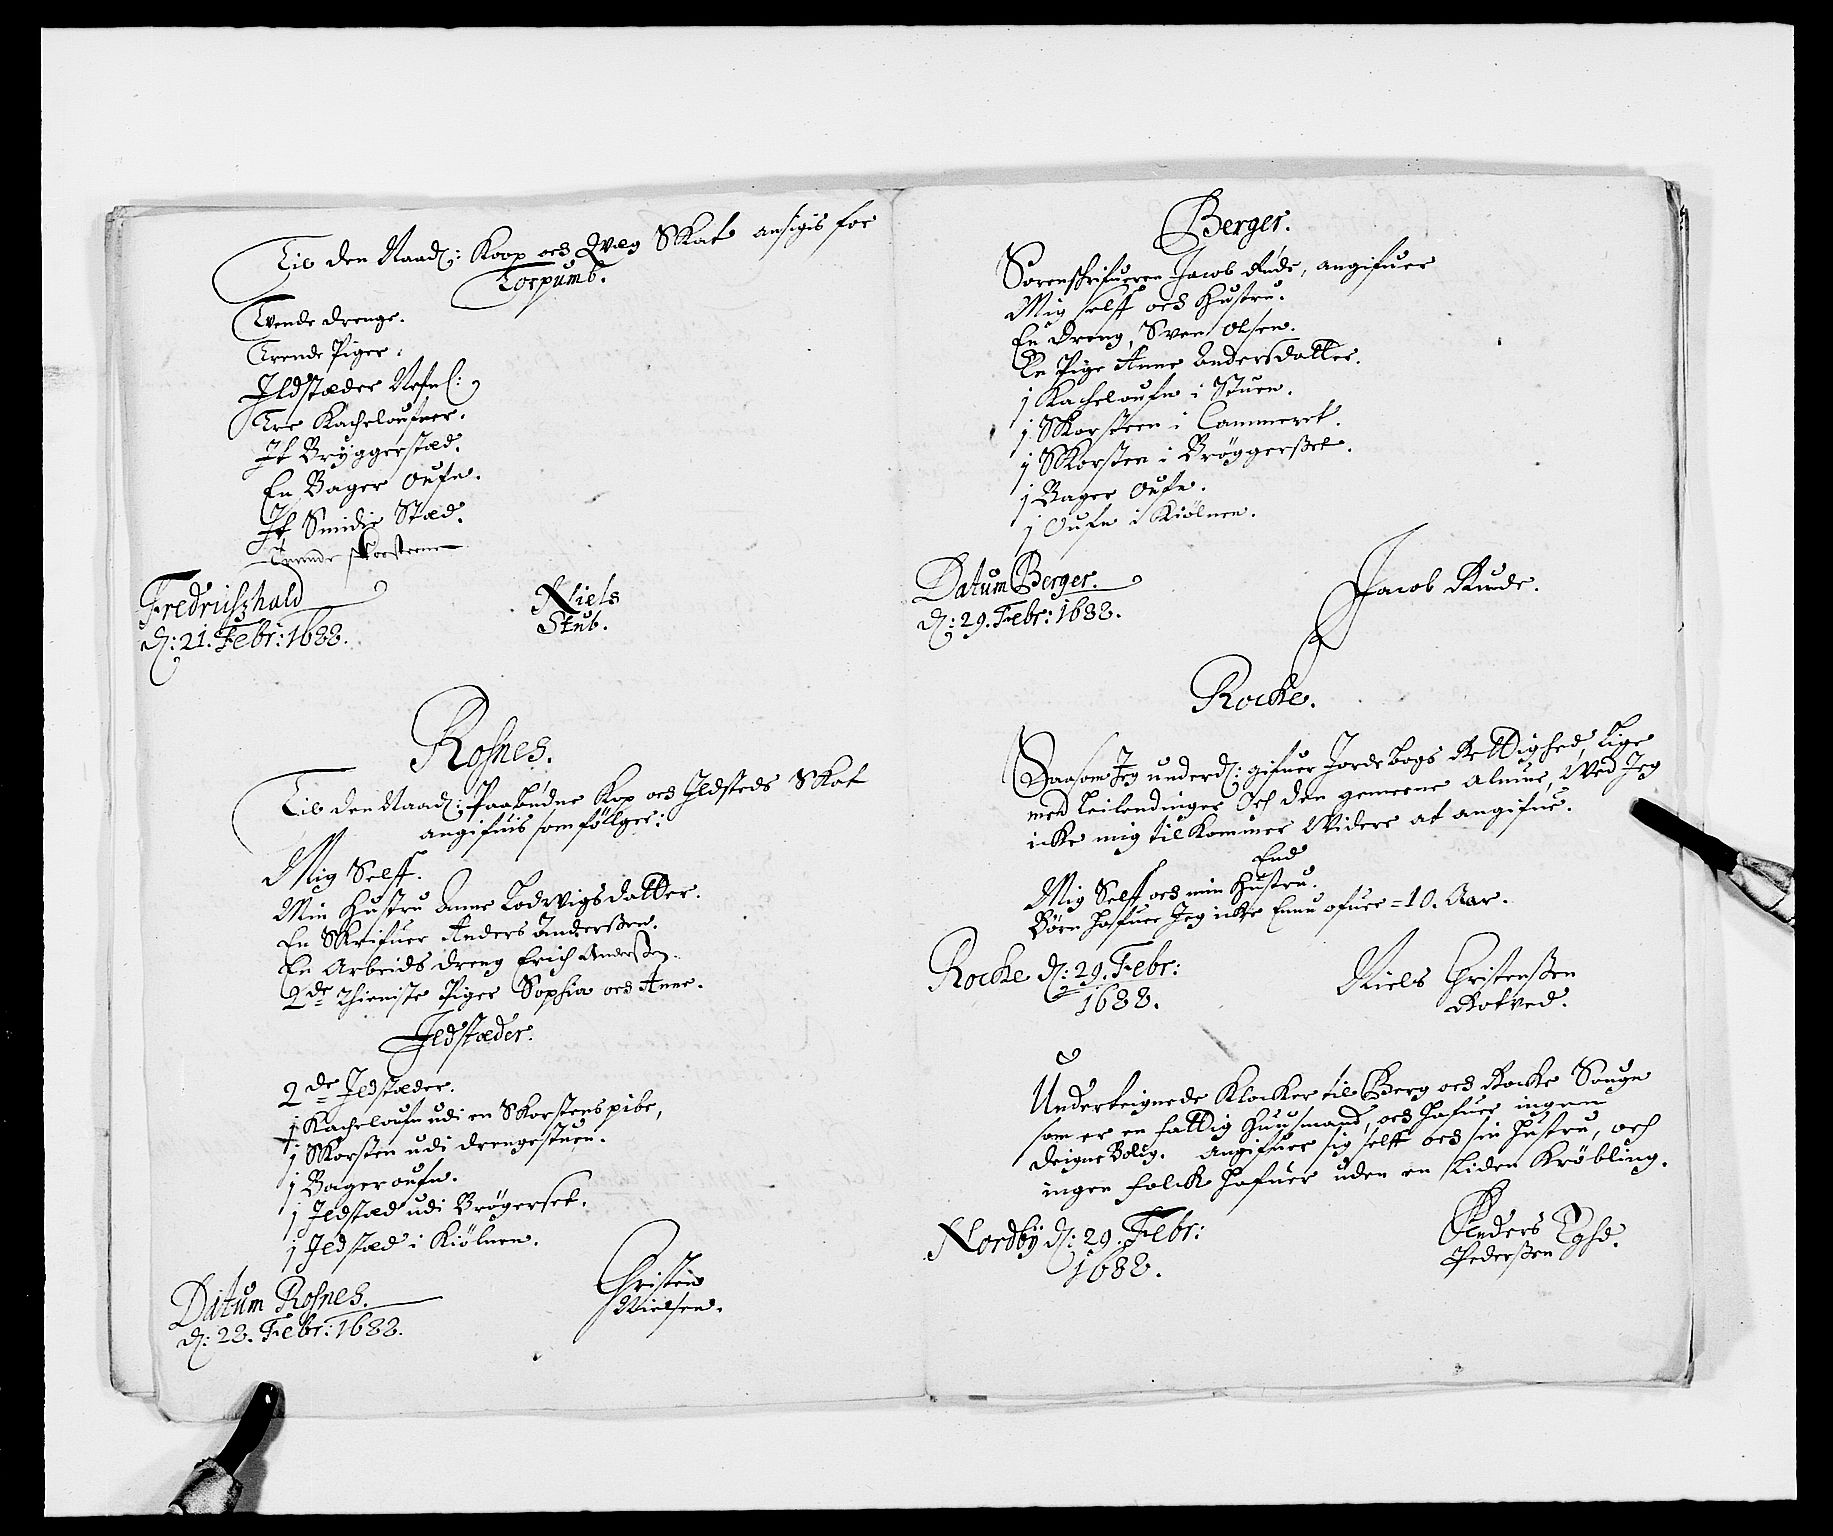 Till den Naad: Kop och Qvæg Skat ansigis for
Torpumb.
Tvende drenge.
Trende Piger.
Jldstæder Nefnl:
Tre Kacheloufner.
Jt Bryggerstæd.
En Bager Oufn.
Jt Smidie Stæd.
Tvende skorsteene
Fredrichshald
d: 21. Febr: 1688.
Niels
Stub.
Rosnes.
Till den Naad: Paabudne Kop och Jldsteds Skat
angifuis som føllger:
Mig Selff.
Min Hustru Anne Lodwigsdatter.
En Skrifuer Anders Anderssen.
En Arbeids dreng Erich Anderssen.
2de thieniste Piger Sophia och Anne.
Jldstæder.
2de Jldstæder.
1 Kacheloufn udi en Skorstens pibe,
1 Skorsten udi drengestuen.
1 Bageroufn.
1 Jldstæd udi Brøgerset.
1 Jldstæd i Kiølnen.
Datum Rosnes.
d: 28. Febr: 1688.
Christen
Nielsen.
Berger.
Sorenschrifueren Jacob Rude, angifuer
Mig selff och Hustru.
En Dreng, Sven Olsen.
En Pige Anne Andersdatter.
1 Kacheloufn i Stuen.
1 Skorsteen i Cammeret.
1 Skorsten i Brøggersset.
1 Bager Oufn.
1 Oufn i Kiølnen.
Datum Berger.
d: 29. Febr: 1688.
Jacob Rude.
Rocke.
Saasom Jeg underd: gifuer Jordebogs Rettighed, lige
med Leilendinger och den gemeene Almue, Ved Jeg
icke mig tilkommer Widere at angifue.
End
Mig Selff och min Hustru.
Børn hafuer Jeg icke Ennu ofuer = 10. Aar.
Rocke d: 29. Febr:
1688.
Niels Christenssen
Rotved.
Underteignede Klocker til Berg och Rocke Sougn
som er en fattig Huusmand, och hafuer ingen
deigne Bolig. Angifuer sig selff och sin Hustru, och
ingen folck hafuer uden en liden Krøbling.
Nordby d: 29. Febr:
1688.
Anders
Pederssen